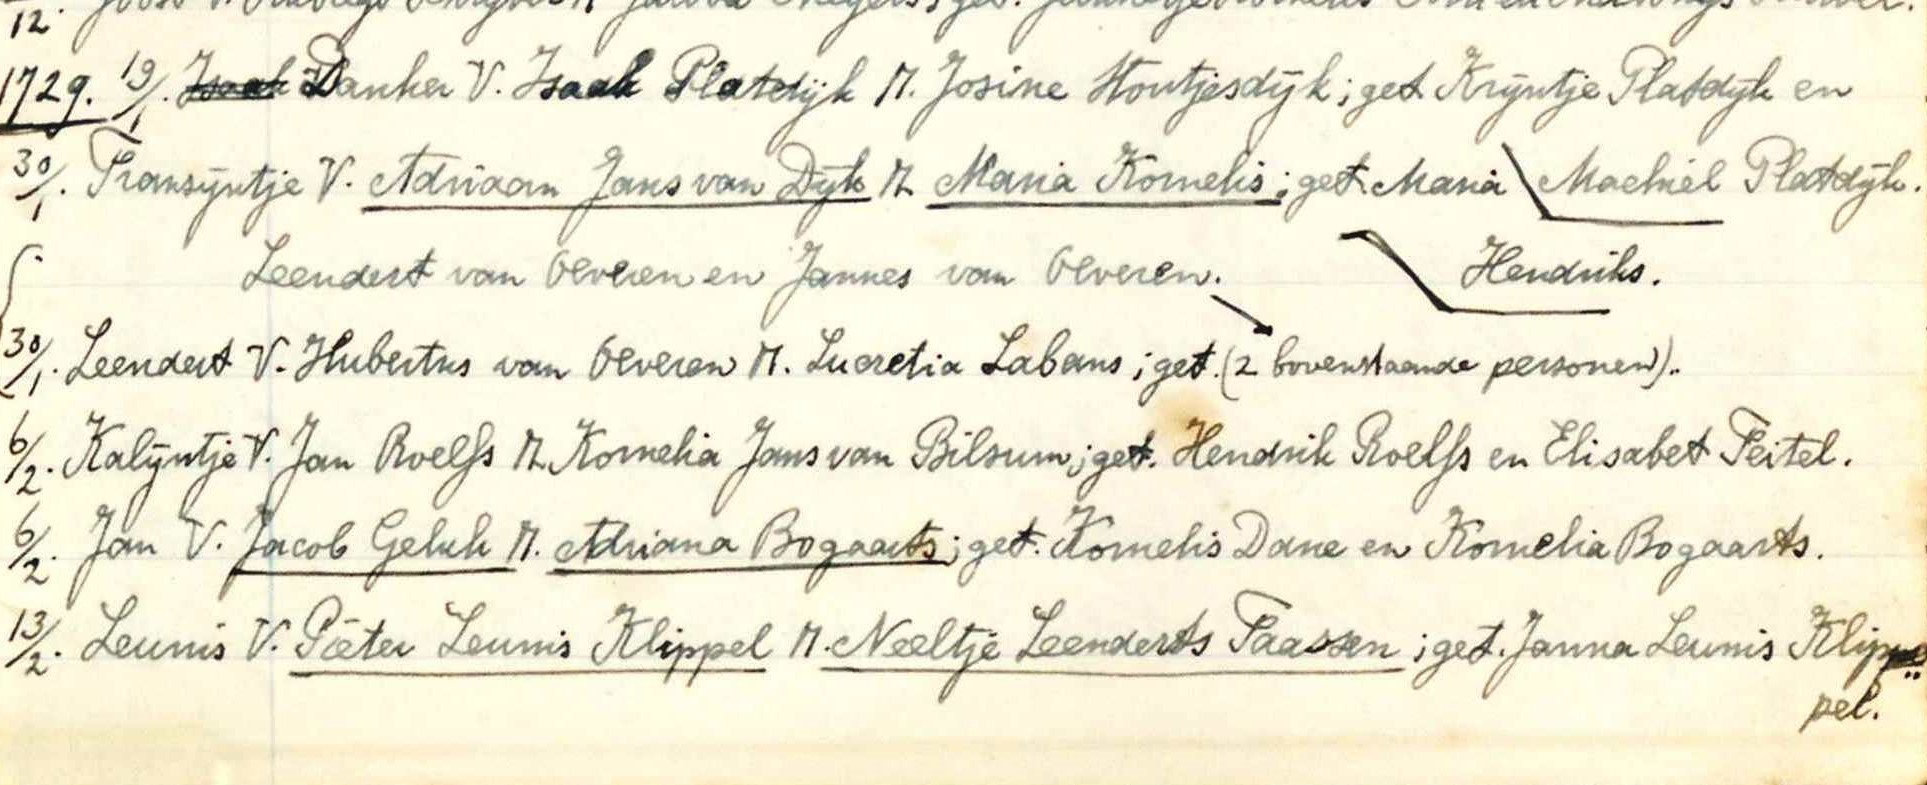 12.
1729. 19/1. Isaak Danker V. Isaak Platdijk M. Josine Houtjesdijk; get Krijntje Platdijk en
30/1. Fransijntje V. Adriaan Jans van Dijk M. Maria Kornelis; get. Maria Machiel Platdijk.
Leendert van Oeveren en Jannes van Oeveren. Hendriks.
30/1. Leendert V. Hubertus van Oeveren M. Lucretia Labans; get. (2 bovenstaande personen).
6/2. Kalijntje V. Jan Roelfs M. Kornelia Jans van Bilsum; get. Hendrik Roelfs en Elisabet Teitel.
6/2. Jan V. Jacob Geluk M. Adriana Bogaarts; get. Kornelis Dane en Kornelia Bogaarts.
13/2. Leunis V. Pieter Leunis Klippel M. Neeltje Leenderts Faassen; get. Janna Leunis Klip
pel.